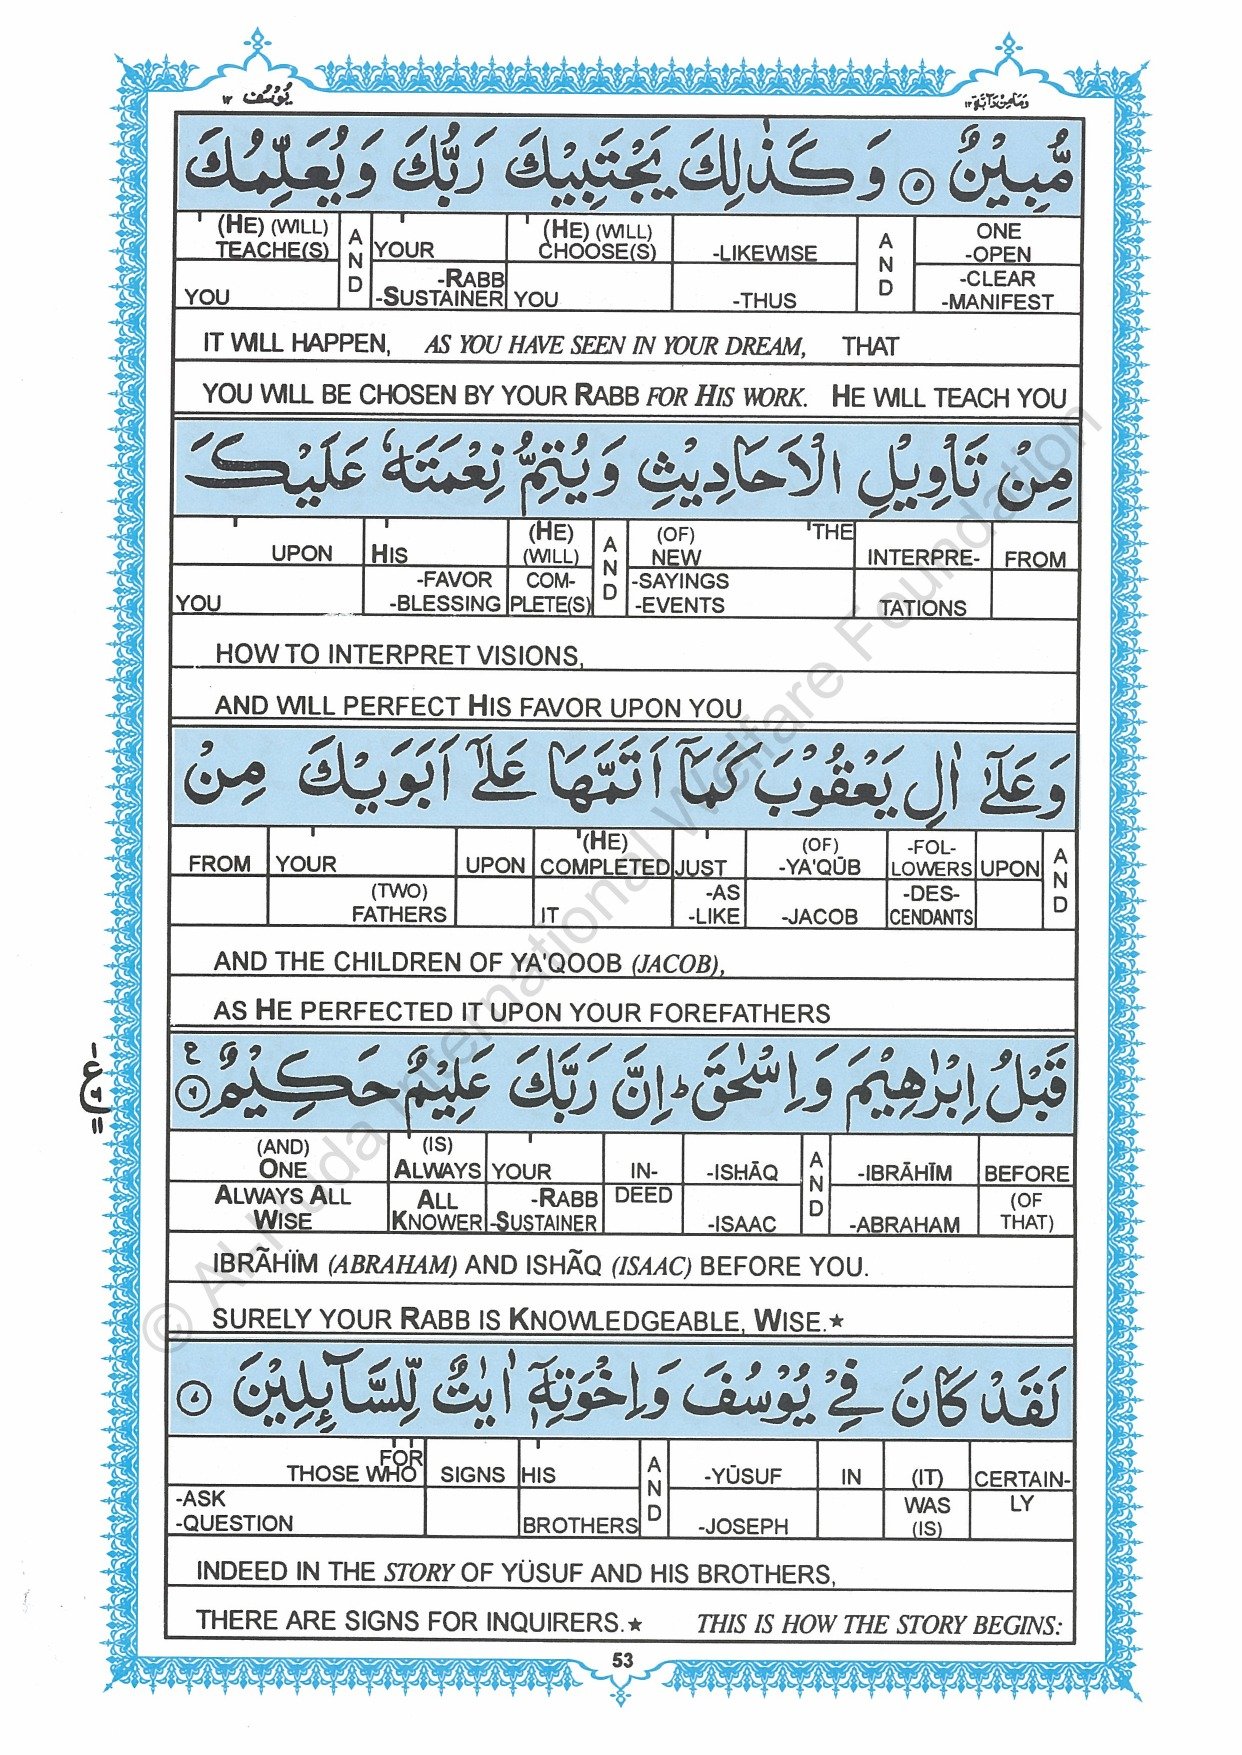 يُوسُف ١٢
وَمَا مِنْ دَآبَّةٍ ١٢
مُّبِيْنٌ ۝٥ وَكَذٰلِكَ يَجْتَبِيْكَ رَبُّكَ وَيُعَلِّمُكَ
(HE) (WILL) TEACHE(S) YOU | AND | YOUR -RABB -SUSTAINER | (HE) (WILL) CHOOSE(S) YOU | -LIKEWISE -THUS | AND | ONE -OPEN -CLEAR -MANIFEST
IT WILL HAPPEN, AS YOU HAVE SEEN IN YOUR DREAM, THAT
YOU WILL BE CHOSEN BY YOUR RABB FOR HIS WORK. HE WILL TEACH YOU
مِنْ تَأْوِيْلِ الْاَحَادِيْثِ وَيُتِمُّ نِعْمَتَهٗ عَلَيْكَ
UPON YOU | HIS -FAVOR -BLESSING | (HE) (WILL) COM-PLETE(S) | AND | (OF) THE NEW -SAYINGS -EVENTS | INTERPRE-TATIONS | FROM
HOW TO INTERPRET VISIONS,
AND WILL PERFECT HIS FAVOR UPON YOU
وَعَلٰٓى اٰلِ يَعْقُوْبَ كَمَآ اَتَمَّهَا عَلٰٓى اَبَوَيْكَ مِنْ
FROM | YOUR (TWO) FATHERS | UPON | (HE) COMPLETED IT | JUST -AS -LIKE | (OF) -YA'QŪB -JACOB | -FOL-LOWERS -DES-CENDANTS | UPON | AND
AND THE CHILDREN OF YA'QOOB (JACOB),
AS HE PERFECTED IT UPON YOUR FOREFATHERS
قَبْلُ اِبْرٰهِيْمَ وَاِسْحٰقَ ؕ اِنَّ رَبَّكَ عَلِيْمٌ حَكِيْمٌ ۝٦ ع
(AND) ONE ALWAYS ALL WISE | (IS) ALWAYS ALL KNOWER | YOUR -RABB -SUSTAINER | IN-DEED | -ISḤĀQ -ISAAC | AND | -IBRĀHĪM -ABRAHAM | BEFORE (OF THAT)
IBRÃHÏM (ABRAHAM) AND ISHÃQ (ISAAC) BEFORE YOU.
SURELY YOUR RABB IS KNOWLEDGEABLE, WISE.★
لَقَدْ كَانَ فِيْ يُوْسُفَ وَاِخْوَتِهٖٓ اٰيٰتٌ لِّلسَّآئِلِيْنَ ۝٧
FOR THOSE WHO -ASK -QUESTION | SIGNS | HIS BROTHERS | AND | -YŪSUF -JOSEPH | IN | (IT) WAS (IS) | CERTAIN-LY
INDEED IN THE STORY OF YÜSUF AND HIS BROTHERS,
THERE ARE SIGNS FOR INQUIRERS.★ THIS IS HOW THE STORY BEGINS:
53
© Al-Huda International Welfare Foundation